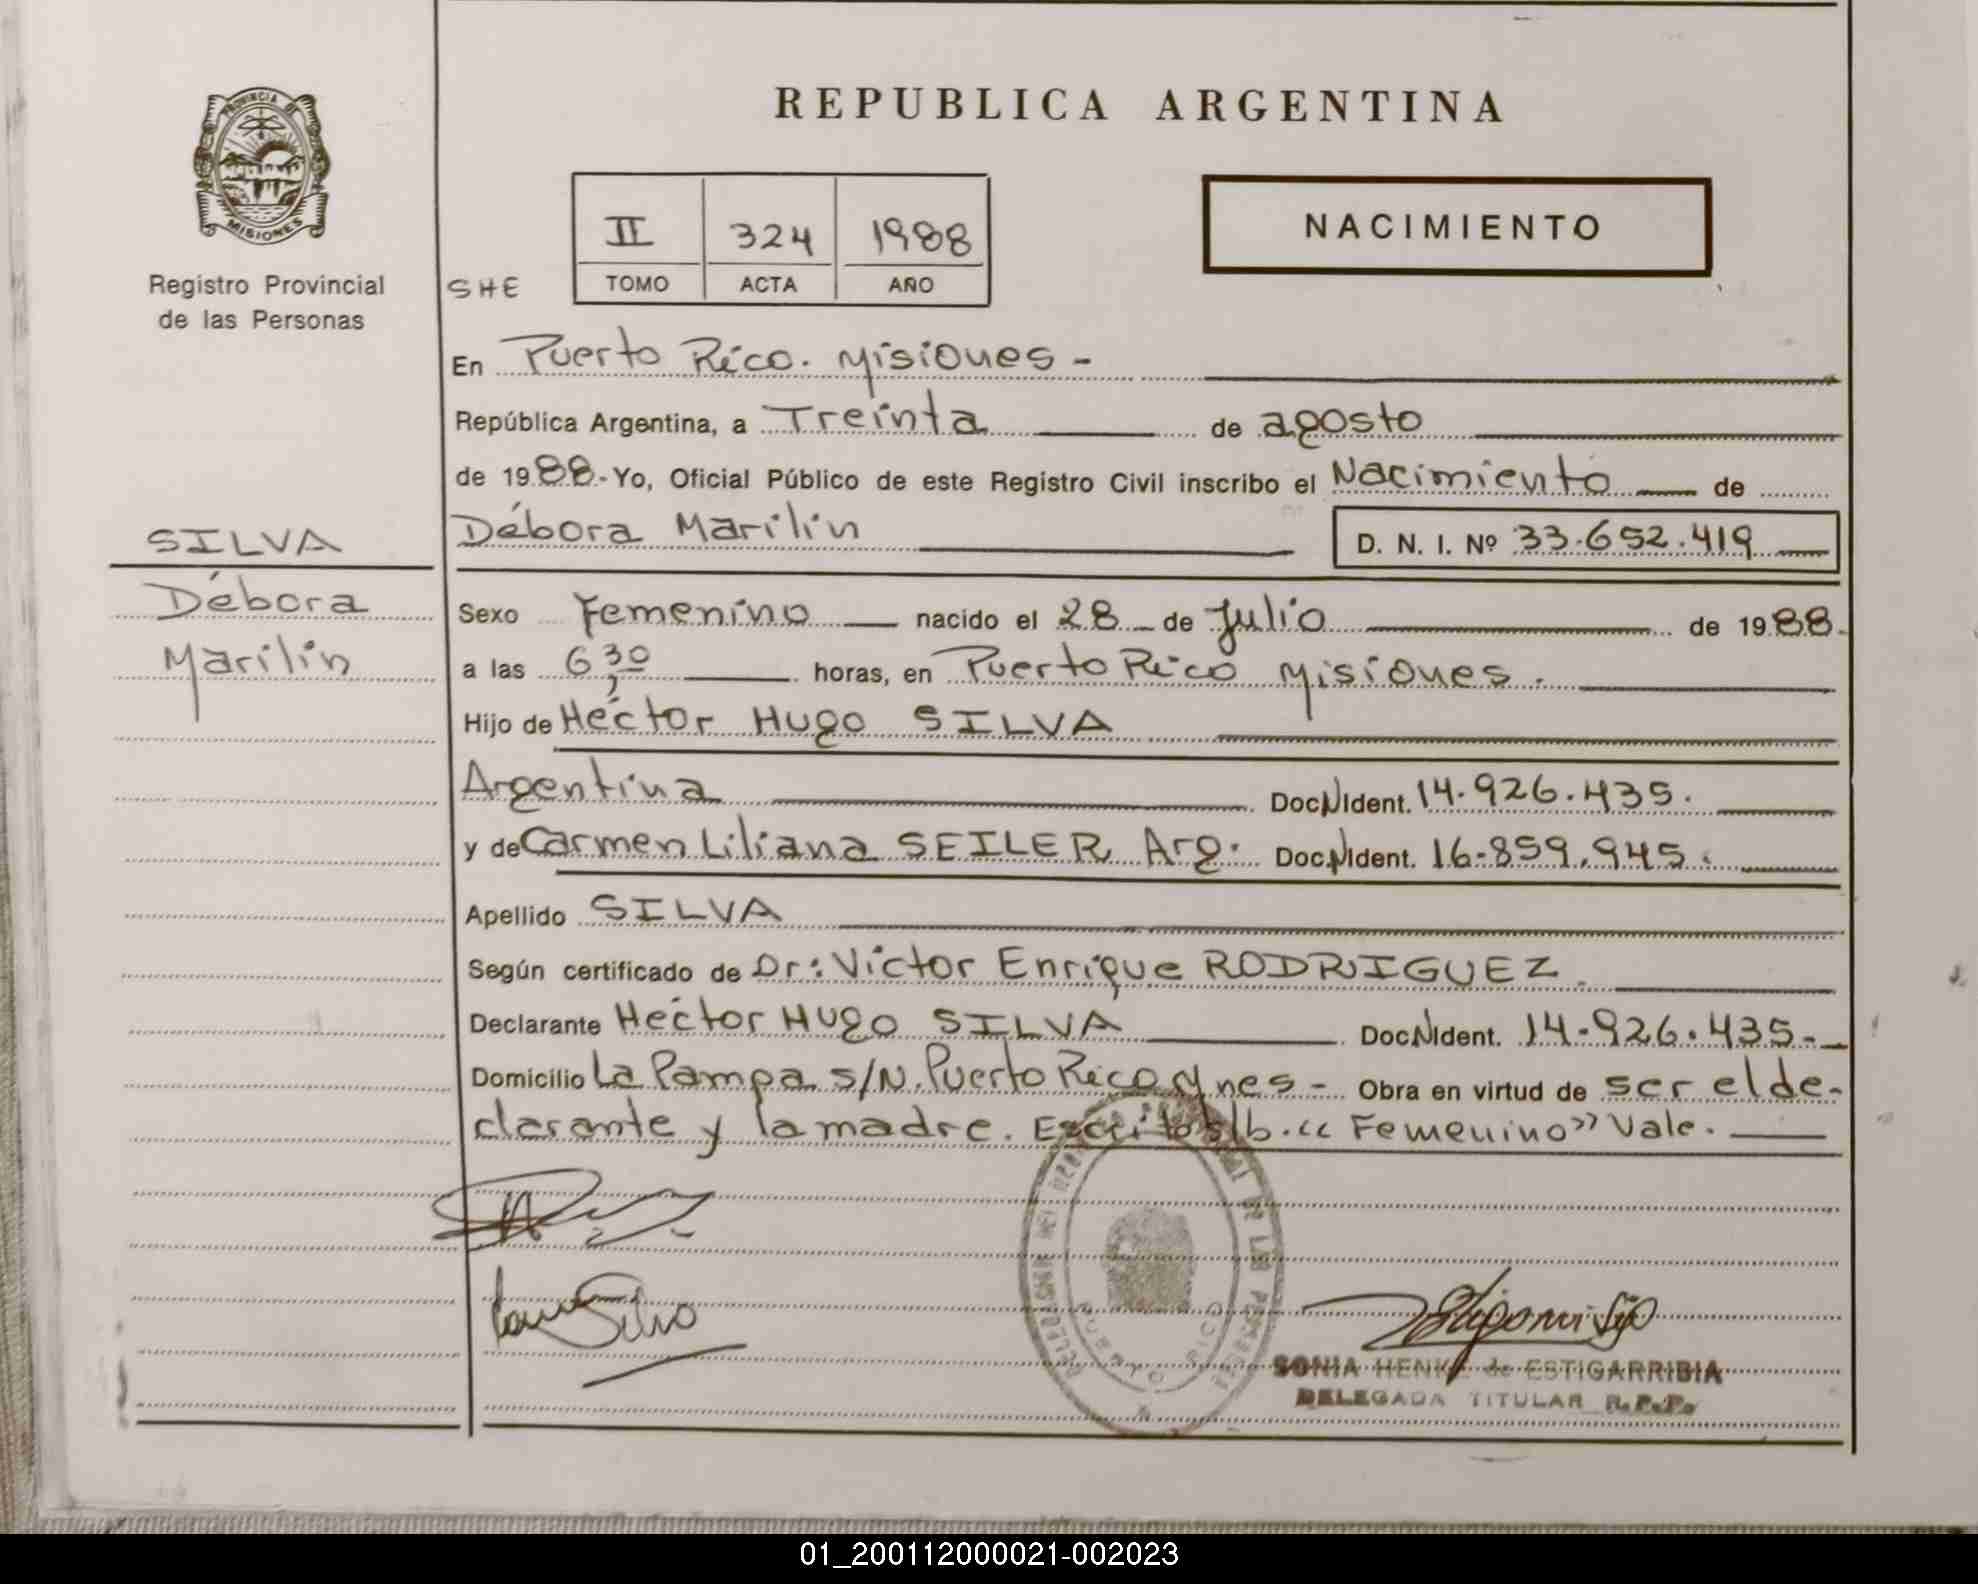 REPUBLICA ARGENTINA
PROVINCIA DE
MISIONES
Registro Provincial
de las Personas
II 324 1988
TOMO ACTA AÑO
NACIMIENTO
SHE
En Puerto Rico. Misiones -
República Argentina, a Treinta de agosto
de 1988.- Yo, Oficial Público de este Registro Civil inscribo el Nacimiento de
Débora Marilin D. N. I. Nº 33.652.419
SILVA
Débora
Marilin
Sexo Femenino nacido el 28 de Julio de 1988.
a las 6,30 horas, en Puerto Rico Misiones.
Hijo de Héctor Hugo SILVA
Argentina Doc.N.Ident. 14.926.435.
y de Carmen Liliana SEILER Arg. Doc.N.Ident. 16.859.945.
Apellido SILVA
Según certificado de Dr: Victor Enrique RODRIGUEZ.
Declarante Héctor Hugo SILVA Doc.N.Ident. 14.926.435.-
Domicilio La Pampa s/N. Puerto Rico Mnes - Obra en virtud de ser el de-
clarante y la madre. Escrito s/b. "Femenino" Vale.
PUERTO RICO
SONIA HENKE de ESTIGARRIBIA
DELEGADA TITULAR R.P.P.
01_200112000021-002023